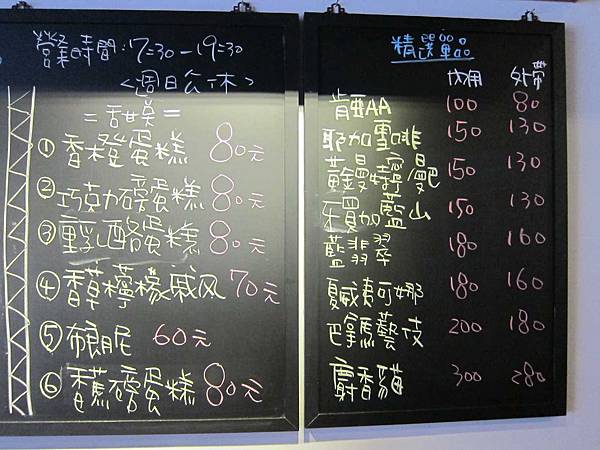 營業時間:7:30-19:30
<週日公休>
=甜美=
① 香橙蛋糕 80元
② 巧克力磅蛋糕 80元
③ 重乳酪蛋糕 80元
④ 香草檸檬戚风 70元
⑤ 布朗尼 60元
⑥ 香蕉磅蛋糕 80元
精選單品
內用 外帶
肯亞AA 100 80
耶加雪啡 150 130
曼特寧 150 130
牙買加藍山 150 130
藍翡翠 180 160
夏威夷可娜 180 160
巴拿馬藝伎 200 180
麝香貓 300 280